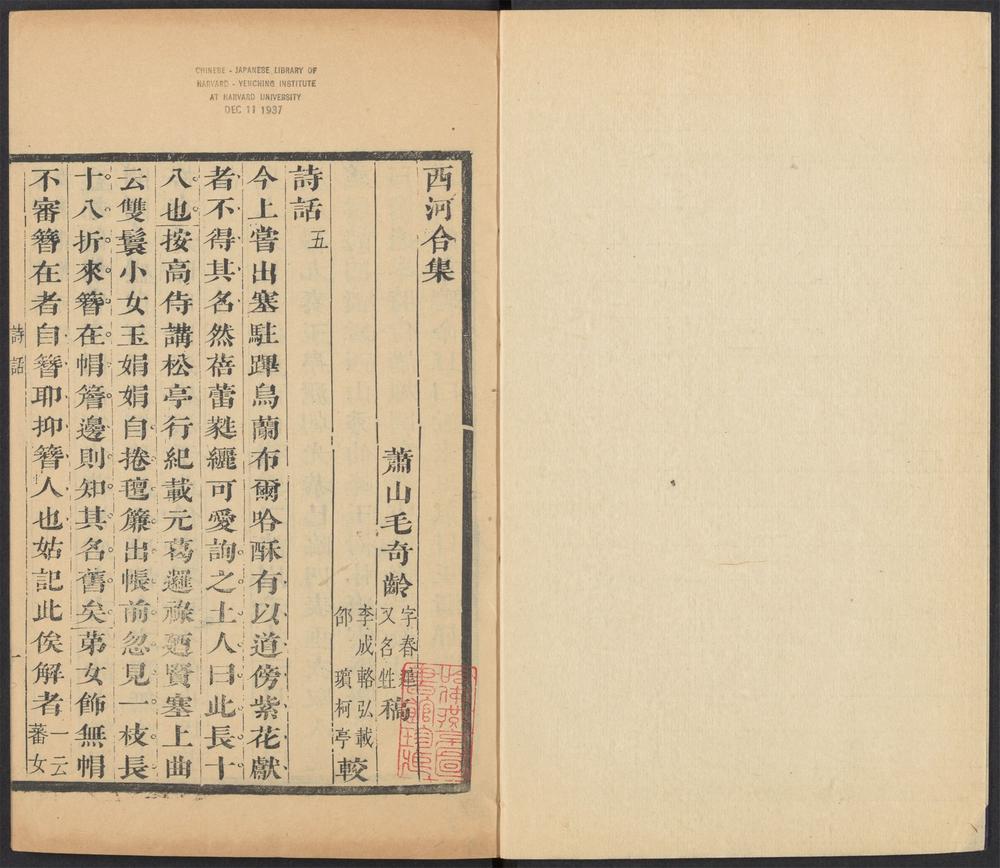 CHINESE - JAPANESE LIBRARY OF
HARVARD - YENCHING INSTITUTE
AT HARVARD UNIVERSITY
DEC 11 1937
西河合集
蕭山毛奇齡字春又名甡稿
李成輅弘載
邵璸柯亭較
詩話五
今上嘗出塞駐蹕烏蘭布爾哈酥有以道傍紫花獻
者不得其名然蓓蕾蕤纚可愛詢之土人曰此長十
八也按高侍講松亭行紀載元葛邏祿廼賢塞上曲
云雙鬟小女玉娟娟自捲氊簾出帳前忽見一枝長
十八折來簪在帽簷邊則知其名舊矣第女飾無帽
不審簪在者自簪耶抑簪人也姑記此俟解者一云蕃女
詩話
一